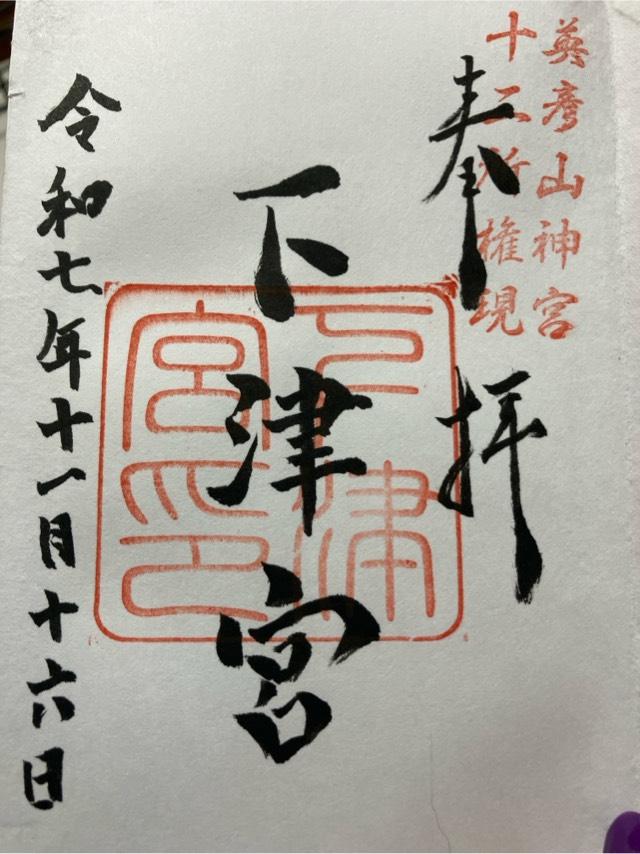 英彦山神宮
十二所権現
奉拝
下津宮
下津宮印
令和七年十一月十六日